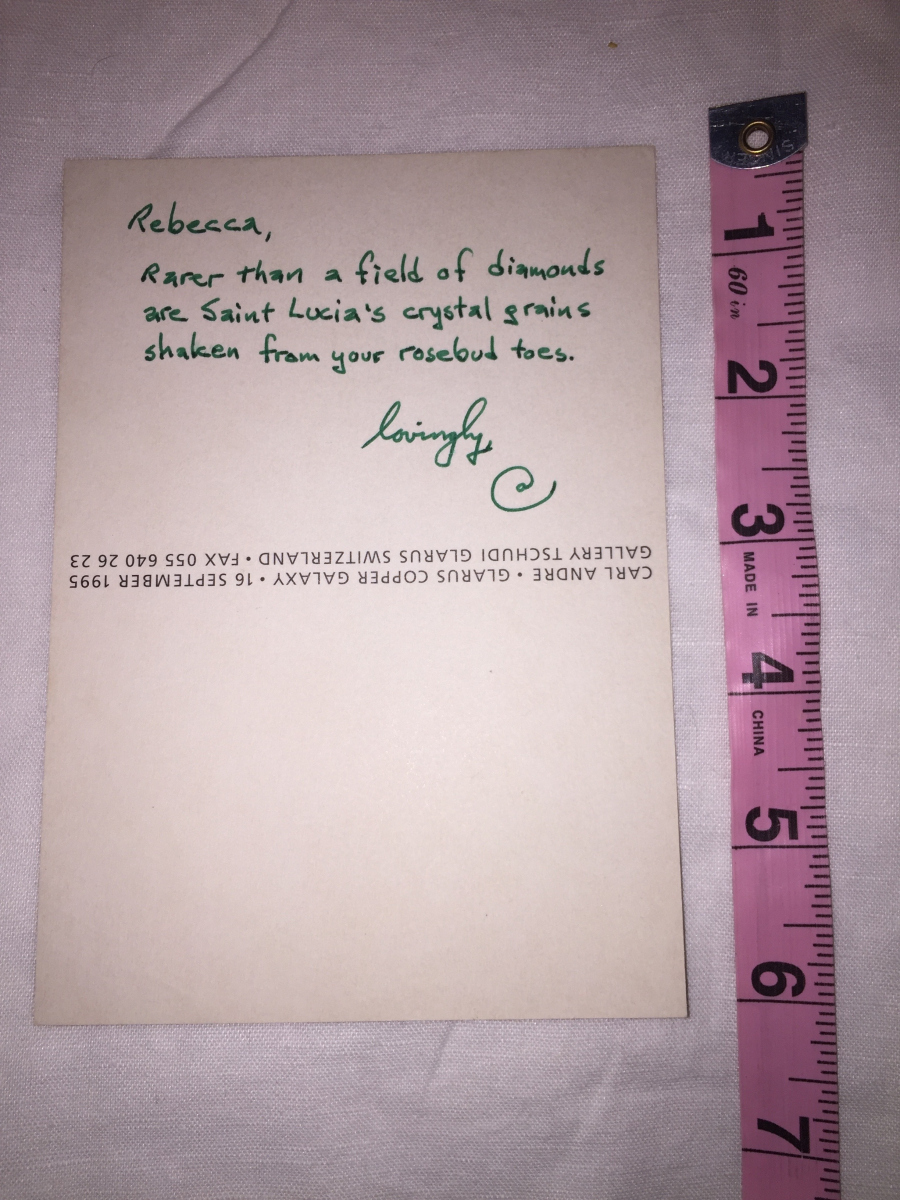 Rebecca,
Rarer than a field of diamonds
are Saint Lucia's crystal grains
shaken from your rosebud toes.
lovingly,
@
CARL ANDRE • GLARUS COPPER GALAXY • 16 SEPTEMBER 1995
GALLERY TSCHUDI GLARUS SWITZERLAND • FAX 055 640 26 23
SINGER
1
60 in
2
3
MADE IN
4
CHINA
5
6
7